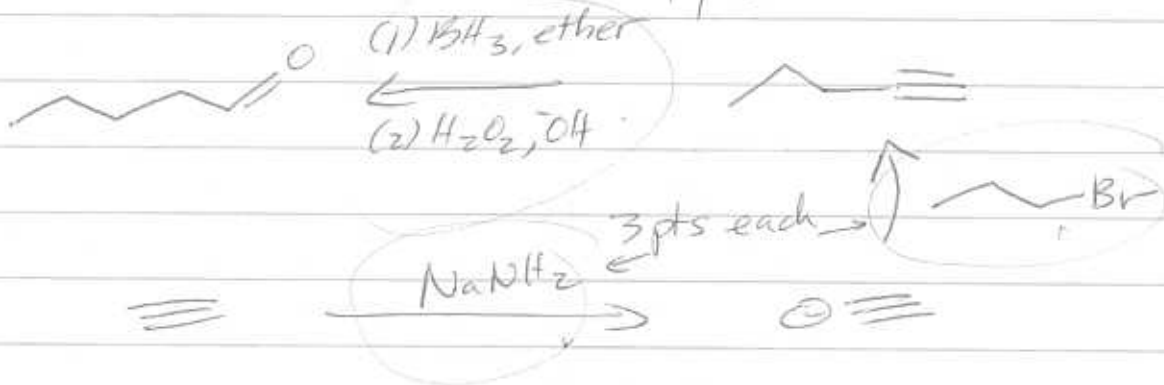 O
(1) BH3, ether
(2) H2O2, -OH
Br
3 pts each
NaNH2